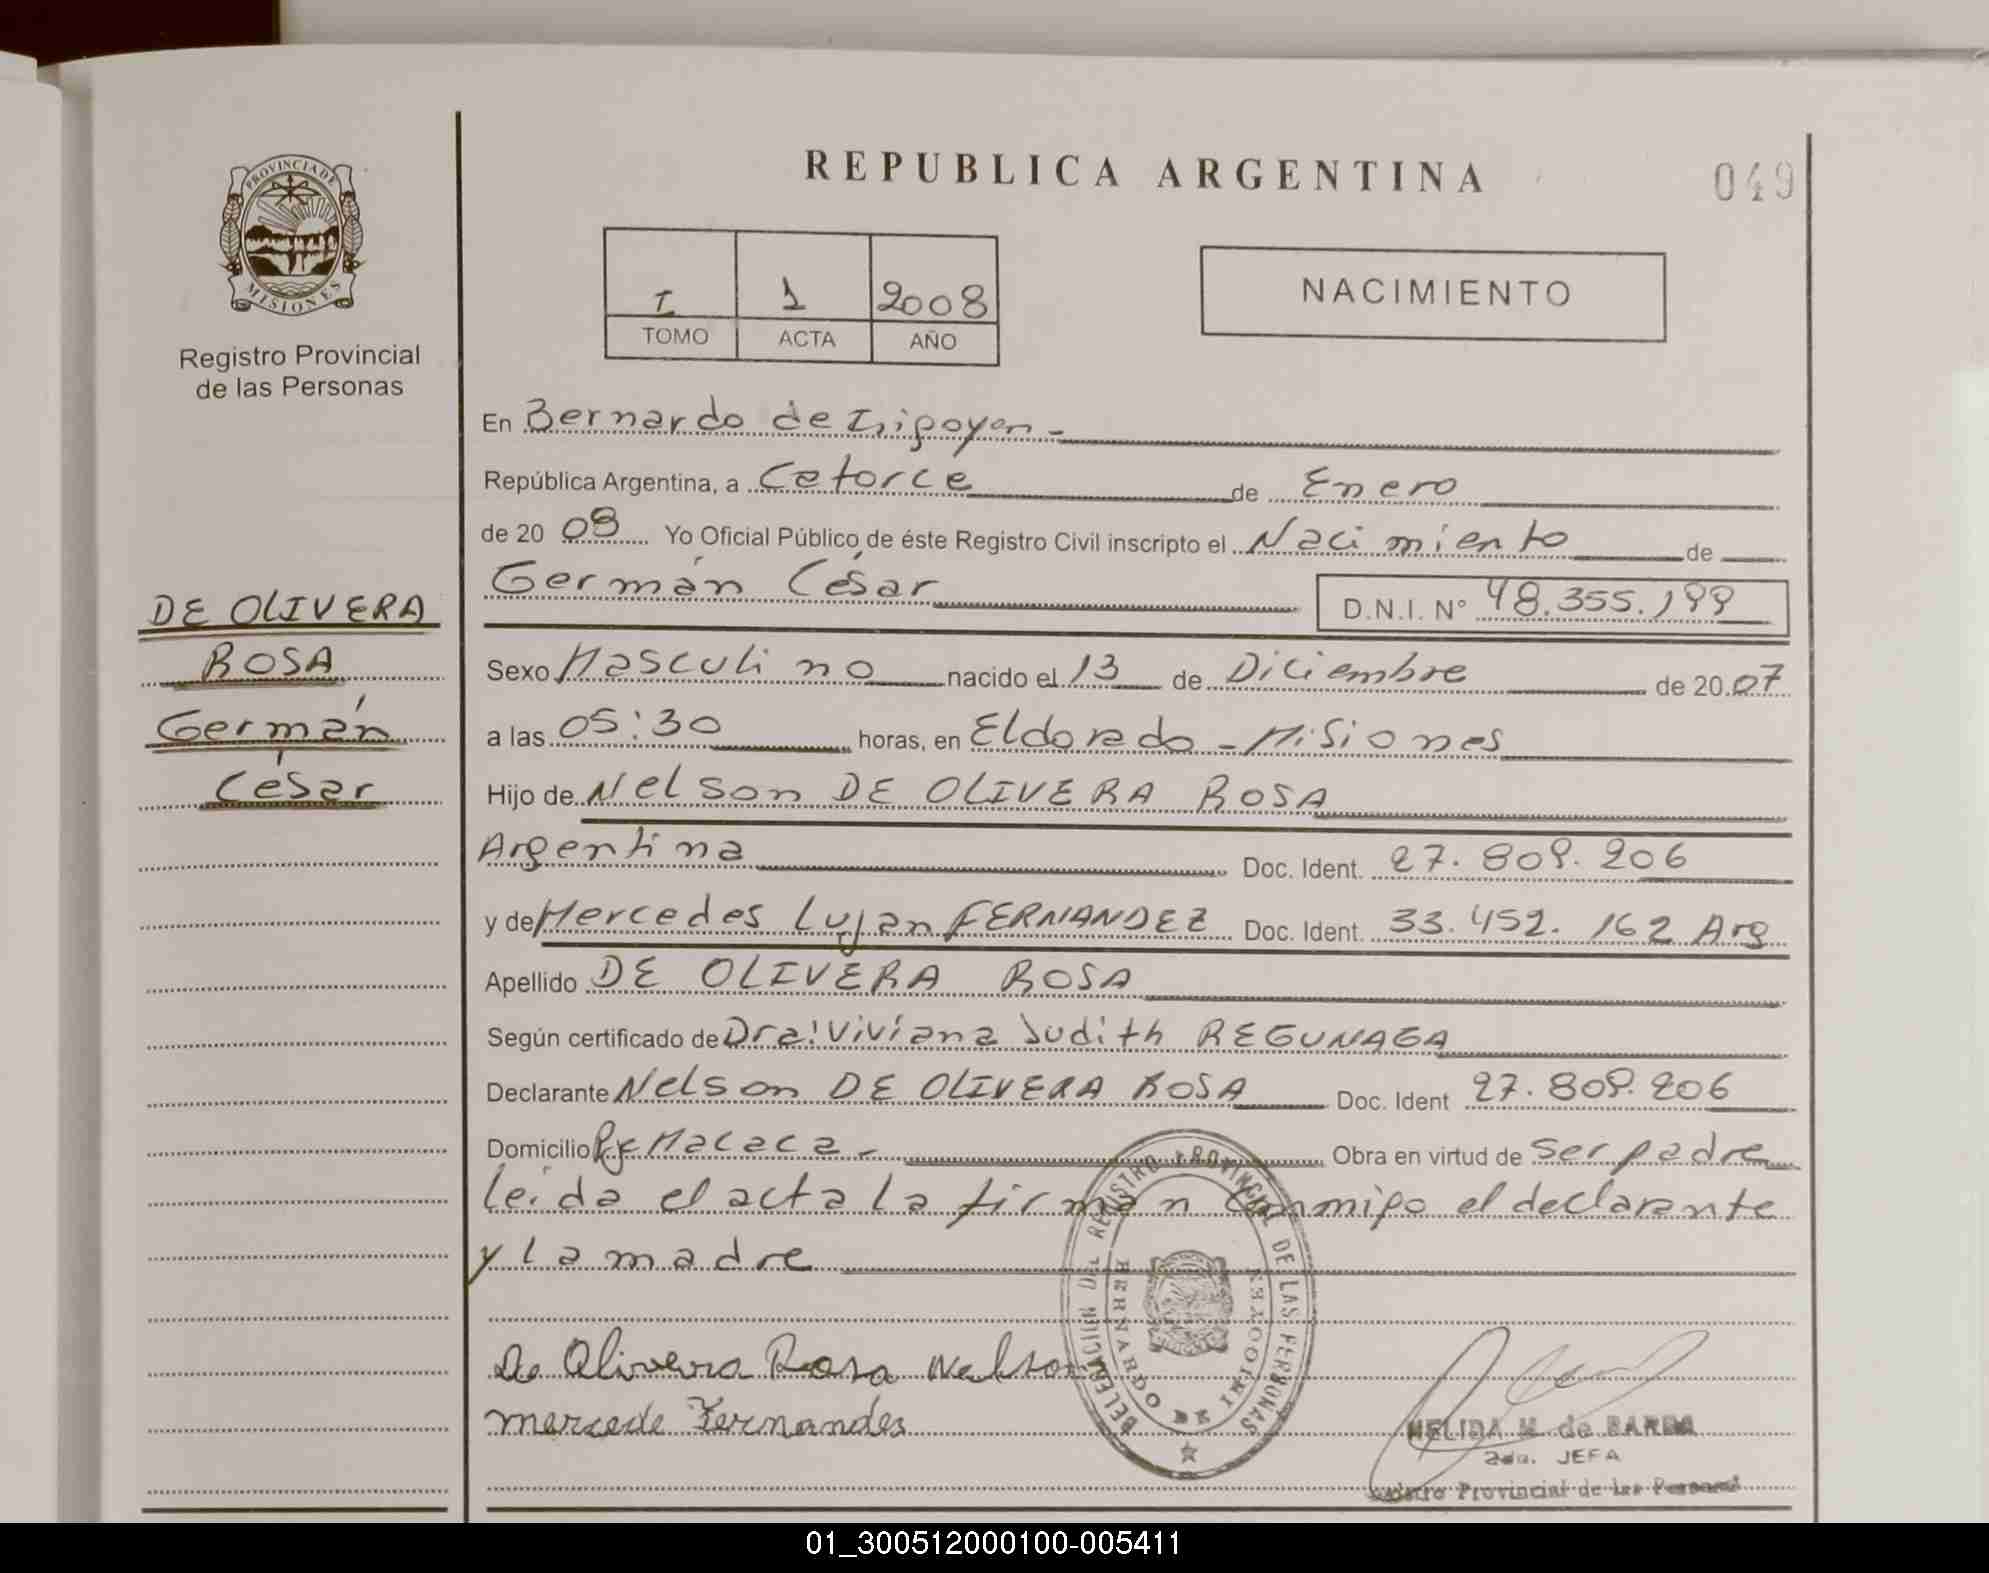 PROVINCIA DE
MISIONES
Registro Provincial
de las Personas
DE OLIVERA
ROSA
Germán
César
REPUBLICA ARGENTINA
049
I 1 2008
TOMO ACTA AÑO
NACIMIENTO
En Bernardo de Irigoyen -
República Argentina, a Catorce de Enero
de 20 08 Yo Oficial Público de éste Registro Civil inscripto el Nacimiento de
Germán César D.N.I. N° 48.355.199
Sexo Masculino nacido el 13 de Diciembre de 20 07
a las 05:30 horas, en Eldorado - Misiones
Hijo de Nelson DE OLIVERA ROSA
Argentina Doc. Ident. 27.809.206
y de Mercedes Lujan FERNANDEZ Doc. Ident. 33.452.162 Arg
Apellido DE OLIVERA ROSA
Según certificado de Dra: Viviana Judith REGUNAGA
Declarante Nelson DE OLIVERA ROSA Doc. Ident 27.809.206
Domicilio Pje Macaca - Obra en virtud de ser padre
leída el acta la firman conmigo el declarante
y la madre
De Olivera Rosa Nelson
mercede Fernandes
DELEGACION DEL REGISTRO PROVINCIAL DE LAS PERSONAS
BERNARDO DE IRIGOYEN
NELIDA M. de BARBA
2da. JEFA
Provincial de las Personas
01_300512000100-005411